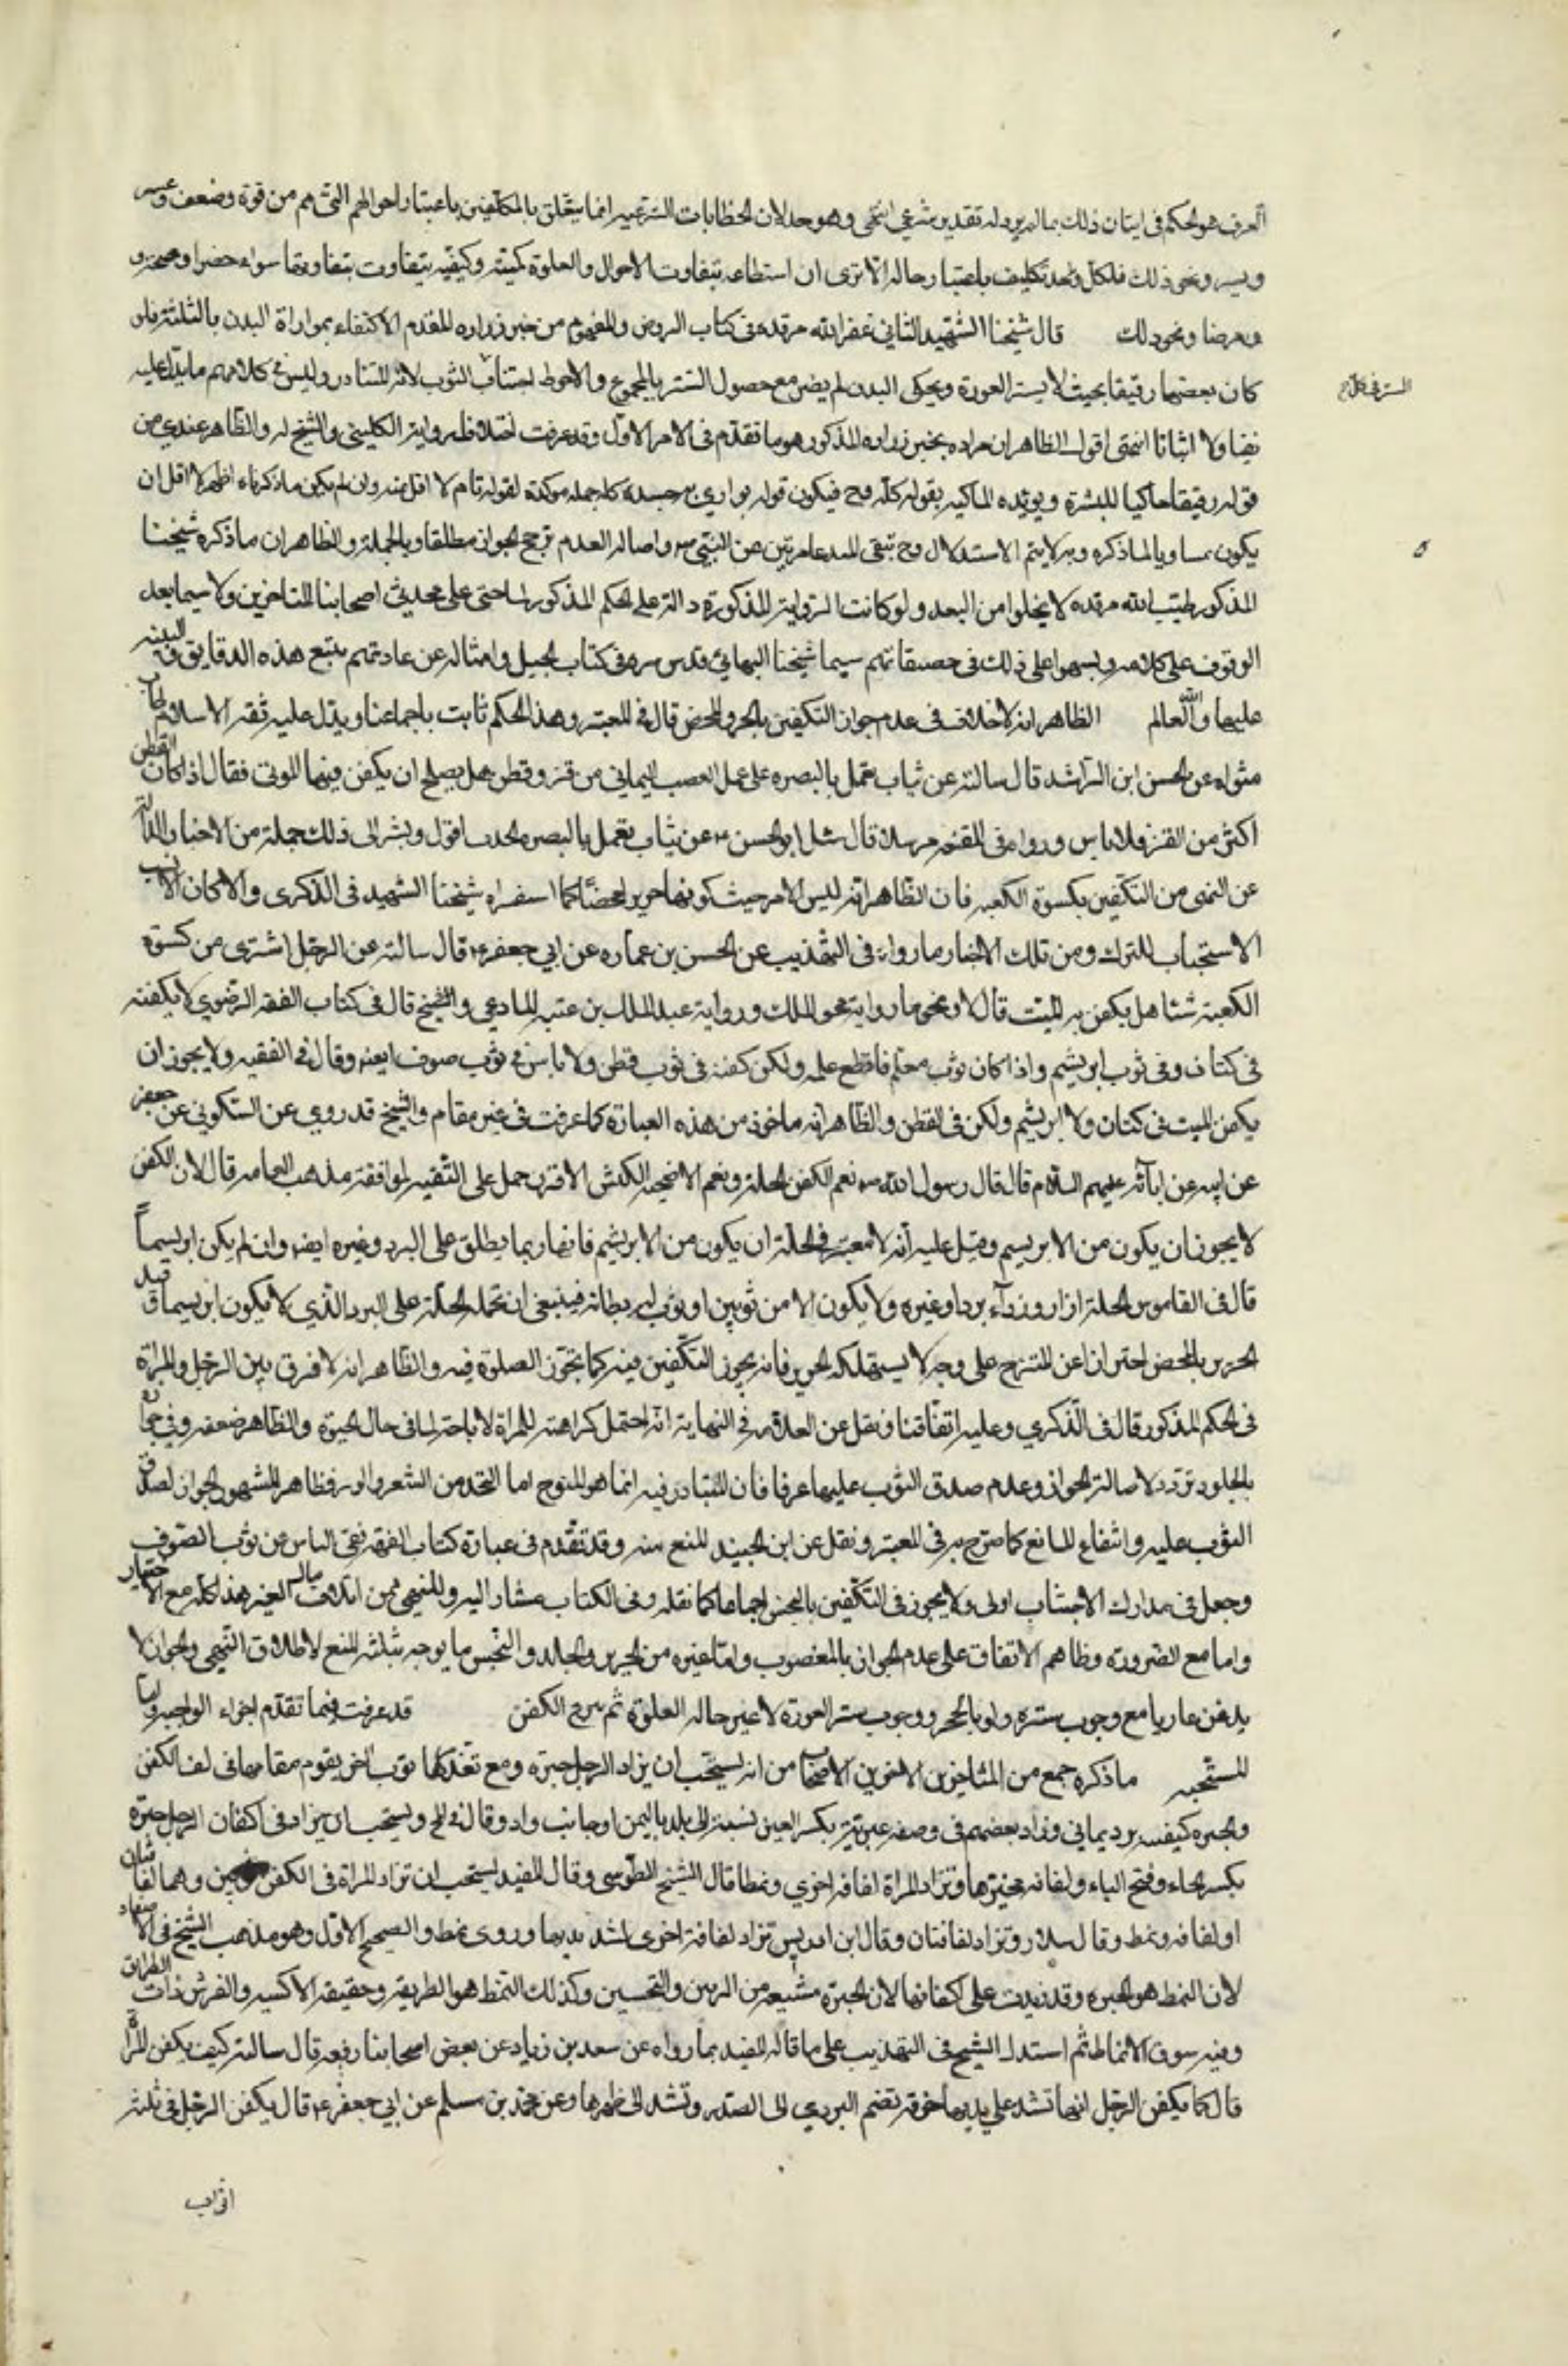 العرف هو الحكم في اتيان ذلك بما لم يرد له تقدير شرعي انتهى وهو جيد لان الخطابات الشرعية انما يتعلق بالمكلفين باعتبار احوالهم التي هم من قوة وضعف وعسر
ويسر ونحو ذلك فلكل واحد تكليف باعتبار حاله الا ترى ان استطاعة بتفاوت الاحوال والصلوة كميته وكيفيه يتفاوت بتفاوتها سواء حضرا وصحة و
ومرضا ونحو ذلك قال شيخنا الشهيد الثاني عفر الله مرقده في كتاب الروض والمفهوم من خبر زراره المقدم الاكتفاء بمواراة البدن بالثلثة فلو
كان بعضها رقيقا بحيث لا يستر العورة ويحكي البدن لم يضر مع حصول الستر بالمجموع والاحوط اجتناب الثوب لانه المتبادر وليس في كلامهم ما يدل عليه
نفيا ولا اثباتا انتهى اقول الظاهر ان مراده بخبر زراره المذكور هو ما تقدم في الامر الاول وقد عرفت اختلاف رواية الكليني والشيخ له والظاهر عندي من
قوله رقيقا حاكيا للبشرة ويؤيده التاكيد بقوله كله وح فيكون قوله يواري به جسده كله جملة موكدة لقوله تام لا اقل منه وان لم يكن ما ذكرناه اظهر لا اقل ان
يكون مساويا لما ذكره وبه لا يتم الاستدلال وح تبقى المسئله عارية عن النص واصالة العدم ترجح الجواز مطلقا وبالجملة والظاهر ان ما ذكره شيخنا
المذكور طيب الله مرقده لا يخلوا من البعد ولو كانت الرواية المذكورة دالة على الحكم المذكور لما خفى على محدثي اصحابنا المتاخرين ولا سيما بعد
الوقوف على كلامه وبسهوا على ذلك في مصنفاتهم سيما شيخنا البهائي قدس سره في كتاب الحبل وامثاله عن عادتهم بتتبع هذه الدقايق والتنبيه
عليها والله العالم الظاهر انه لا خلاف في عدم جواز التكفين بالحرير المحض قال في المعتبر وهذا الحكم ثابت باجماعنا ويدل عليه ثقة الاسلام طاب
مثواه عن الحسن ابن الراشد قال سالته عن ثياب تعمل بالبصره على عمل العصب اليماني من قز وقطن هل يصلح ان يكفن فيها الموتى فقال اذا كان القطن
اكثر من القز فلا باس ورواه في الفقيه مرسلا قال سئل ابو الحسن ع عن ثياب تعمل بالبصره الحديث اقول ويشير الى ذلك جملة من الاخبار الدالة
عن النهي من التكفين بكسوة الكعبه فان الظاهر انه ليس الا من حيث كونها حريرا محضا كما استقراه شيخنا الشهيد في الذكرى والا كان الانسب
الاستحباب للتبرك ومن تلك الاخبار ما رواه في التهذيب عن الحسن بن عماره عن ابي جعفر ع قال سالته عن الرجل اشترى من كسوة
الكعبة شيئا هل يكفن به الميت قال لا ونحوها رواية عبد الملك ورواية عبد الملك بن عتبه الهاشمي والشيخ قال في كتاب الفقه الرضوي لا يكفنه
في كتان وفي ثوب ابريشم واذا كان ثوب معلم فاقطع علمه ولكن كفنه في ثوب قطن ولا باس في ثوب صوف ايضا وقال في الفقيه ولا يجوز ان
يكفن الميت في كتان ولا ابريشم ولكن في القطن والظاهر انه ماخوذ من هذه العبارة كما عرفت في غير مقام والشيخ قد روي عن السكوني عن جعفر
عن ابيه عن ابائه عليهم السلام قال قال رسول الله ص نعم الكفن الحلة ونعم الاضحية الكبش الاقرن حمل على التقيه لموافقة مذهب العامه قال لان الكفن
لا يجوز ان يكون من الابريسم وقيل عليه انه لا يعتبر في الحلة ان يكون من الابريشم فانها ربما يطلق على البرد وغيره ايضا وان لم يكن ابريسما
قال في القاموس الحلة ازار ورداء برد او غيره ولا يكون الا من ثوبين او ثوب له بطانة فينبغي ان تحمله الحلة على البرد الذي لا يكون ابريسما وقيد
الحرير بالمحض احترازا عن الممتزج على وجه لا يستهلكه الحرير فانه يجوز التكفين فيه كما تجوز الصلوة فيه والظاهر انه لا فرق بين الرجل والمراة
في الحكم المذكور قال في الذكري وعليه اتفاقنا ونقل عن العلامة في النهاية انه احتمل كراهته للمراة لاباحته لها في حال الحيوة والظاهر ضعفه وفي جواز
بالجلود تردد لاصالة الجواز وعدم صدق الثوب عليها عرفا فان المتبادر فيه انما هو المنسوج اما المتخذ من الشعر والوبر فظاهر المشهور الجواز لصدق
الثوب عليه وانتفاء المانع كما صرح به في المعتبر ونقل عن ابن الجنيد المنع منه وقد تقدم في عبارة كتاب الفقه نفي الباس عن ثوب الصوف
وجعل في مدارك الاجتناب اولى ولا يجوز في التكفين بالنجس اجماعا كما نقله وفي الكتاب مشار اليه وللنهي من اتلاف مال الغير هذا كله مع الاختيار
واما مع الضرورة وظاهرهم الاتفاق على عدم الجواز بالمغصوب واما غيره من الحرير والجلد والنجس ما يوجه بثلثة المنع لاطلاق النهي والجواز لا
يدفن عاريا مع وجوب ستره ولو بالحجر ووجوب ستر العورة لا غير حاله الصلوة ثم ينزع الكفن قد عرفت فيما تقدم اجزاء الواجبه واما
المستحبه ما ذكره جمع من المتاخرين الاخرين الاصحاب من انه يستحب ان يزاد الرجل حبرة ومع تعذرها ثوب اخر يقوم مقامها في لف الكفن
والحبره كعنبه برد يماني وزاد بعضهم في وصفه عبرية بكسر العين نسبة الى بلد باليمن او جانب واد وقال في يع ويستحب ان يزاد في اكفان الرجل حبرة
بكسر الحاء وفتح الباء ولفافه وتزاد المراة لفافه اخري ونمطا قال الشيخ الطوسي وقال المفيد يستحب ان تزاد المراة في الكفن ثوبين وهما لفافتان
او لفافه ونمط وقال سلار وتزاد لفافتان وقال ابن ادريس تزاد لفافة اخرى لشد ثدييها وروى نمط والصحيح الاول وهو مذهب الشيخ في الاقتصاد
لان النمط هو الحبرة وقد زيدت على اكفانها لان الحبرة مشتقه من الزين والتحسين وكذلك النمط هو الطريقة وحقيقة الاكسيه والفرش ذات الطرائق
ومنه سوق الانماط ثم استدل الشيخ في التهذيب على ما قاله المفيد بما رواه عن سعد بن زياد عن بعض اصحابنا رفعه قال سالته كيف يكفن المراة
قال كما يكفن الرجل انها تشد على ثدييها خرقة تضم الثدي الى الصدر وتشد الى ظهرها وعن محمد بن مسلم عن ابي جعفر ع قال يكفن الرجل في ثلثة
اثواب